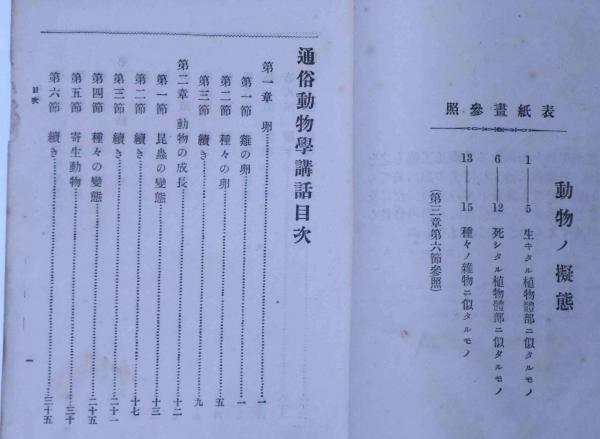 表紙畫參照
動物ノ擬態
1——5 生キタル植物體部ニ似タルモノ
6——12 死シタル植物體部ニ似タルモノ
13——15 種々ノ雜物ニ似タルモノ
(第三章第六節參照)
通俗動物學講話目次
第一章 卵……一
第一節 雞の卵……一
第二節 種々の卵……五
第三節 續き……九
第二章 動物の成長……十二
第一節 昆蟲の變態……十三
第二節 續き……十七
第三節 續き……二十一
第四節 種々の變態……二十五
第五節 寄生動物……三十
第六節 續き……三十五
目次
一